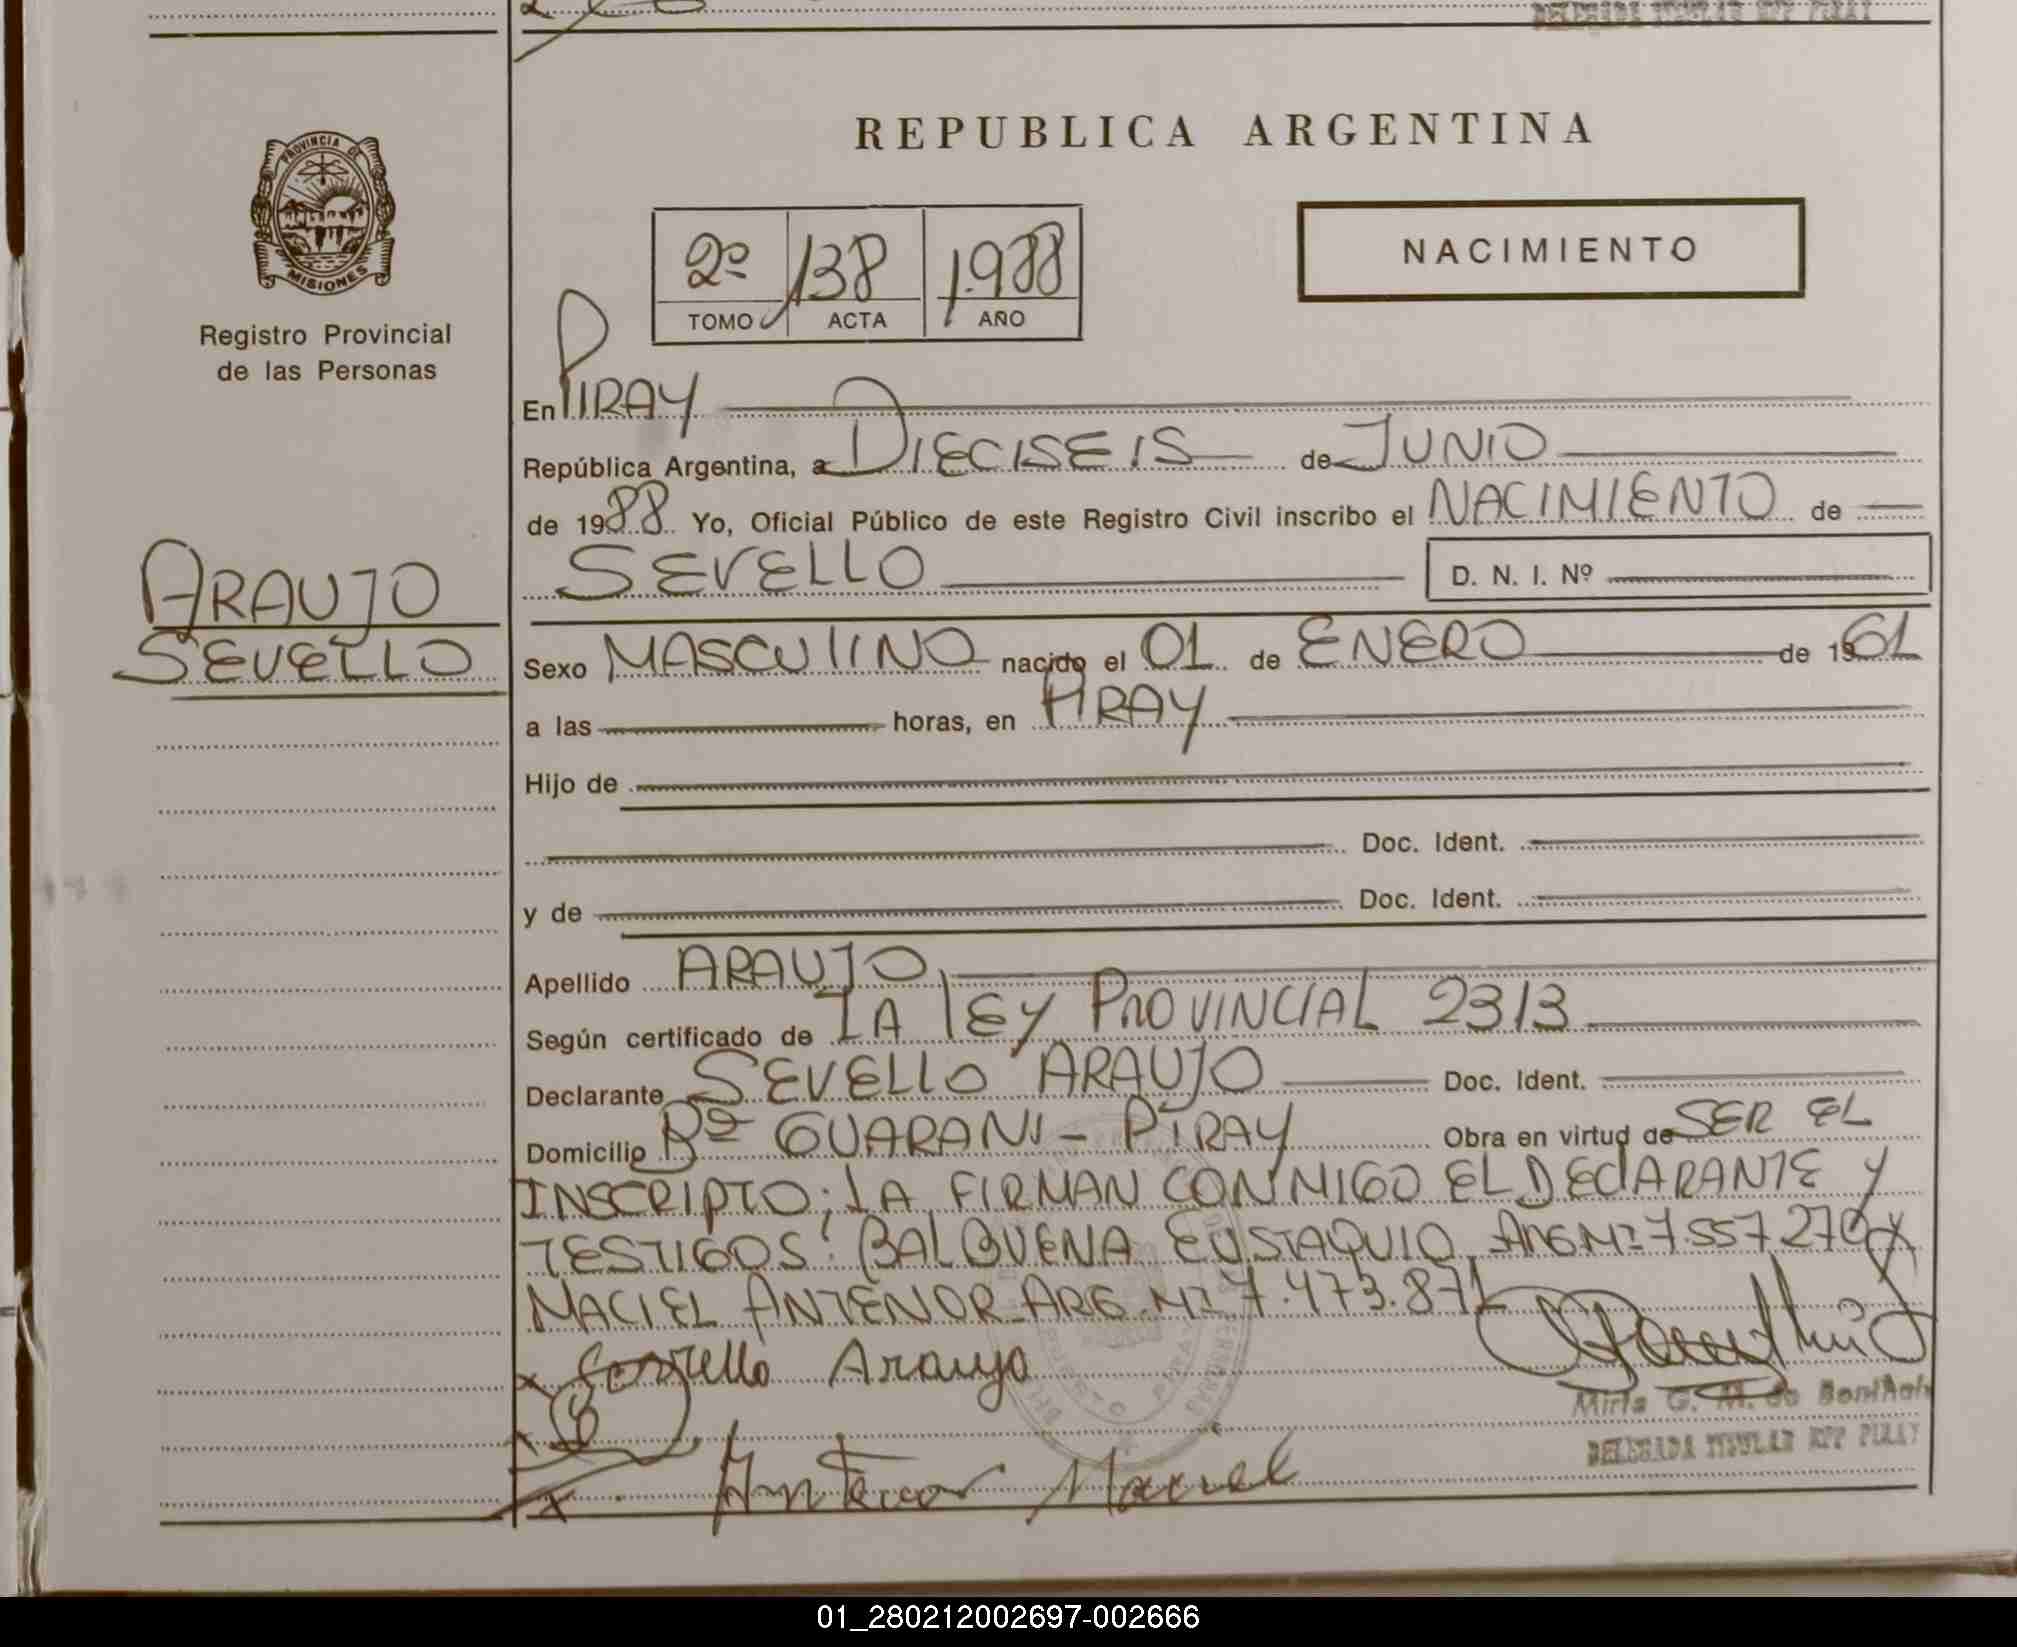 DELEGADA TITULAR RPP PIRAY
PROVINCIA DE
MISIONES
Registro Provincial
de las Personas
REPUBLICA ARGENTINA
2º 138 1.988
TOMO ACTA AÑO
NACIMIENTO
En PIRAY
República Argentina, a DIECISEIS de JUNIO
de 1988 Yo, Oficial Público de este Registro Civil inscribo el NACIMIENTO de
SEVELLO D. N. I. Nº
ARAUJO
SEVELLO
Sexo MASCULINO nacido el 01 de ENERO de 1961
a las horas, en PIRAY
Hijo de
Doc. Ident.
y de Doc. Ident.
Apellido ARAUJO
Según certificado de LA LEY PROVINCIAL 2313
Declarante SEVELLO ARAUJO Doc. Ident.
Domicilio Bº GUARANI - PIRAY Obra en virtud de SER EL
INSCRIPTO; LA FIRMAN CONMIGO EL DECLARANTE Y
TESTIGOS: BALBUENA EUSTAQUIO ARG Mº 7.557.270 y
MACIEL ANTENOR ARG. Mº 7.473.871
x Araujo
x
Mirta G. M. de
DELEGADA TITULAR RPP PIRAY
x Antenor Maciel
01_280212002697-002666